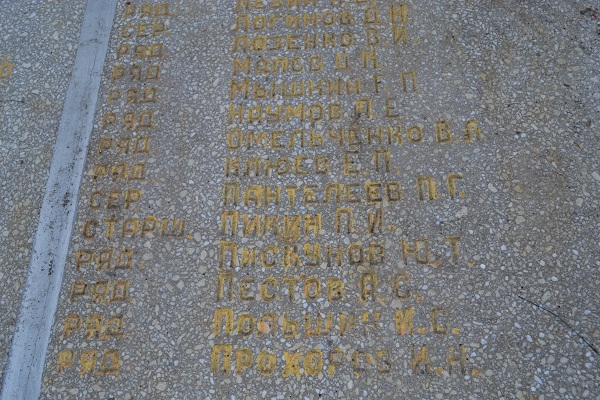 РЯД.
СЕР. ЛОГИНОВ Д.И.
РЯД. ЛОЗЕНКО В.И.
РЯД. МАЛОВ
РЯД. МЫШКИН Г.П.
РЯД. НАУМОВ П.Е.
РЯД. ОМЕЛЬЧЕНКО В.Л.
РЯД. КЛЮЕВ Е.П.
СЕР. ПАНТЕЛЕЕВ П.Г.
СТАРШ. ПИКИН П.И.
РЯД. ПИСКУНОВ Ю.Т.
РЯД. ПЕСТОВ А.С.
РЯД. ПОЛЬШИН И.С.
РЯД. ПРОХОРОВ И.Н.